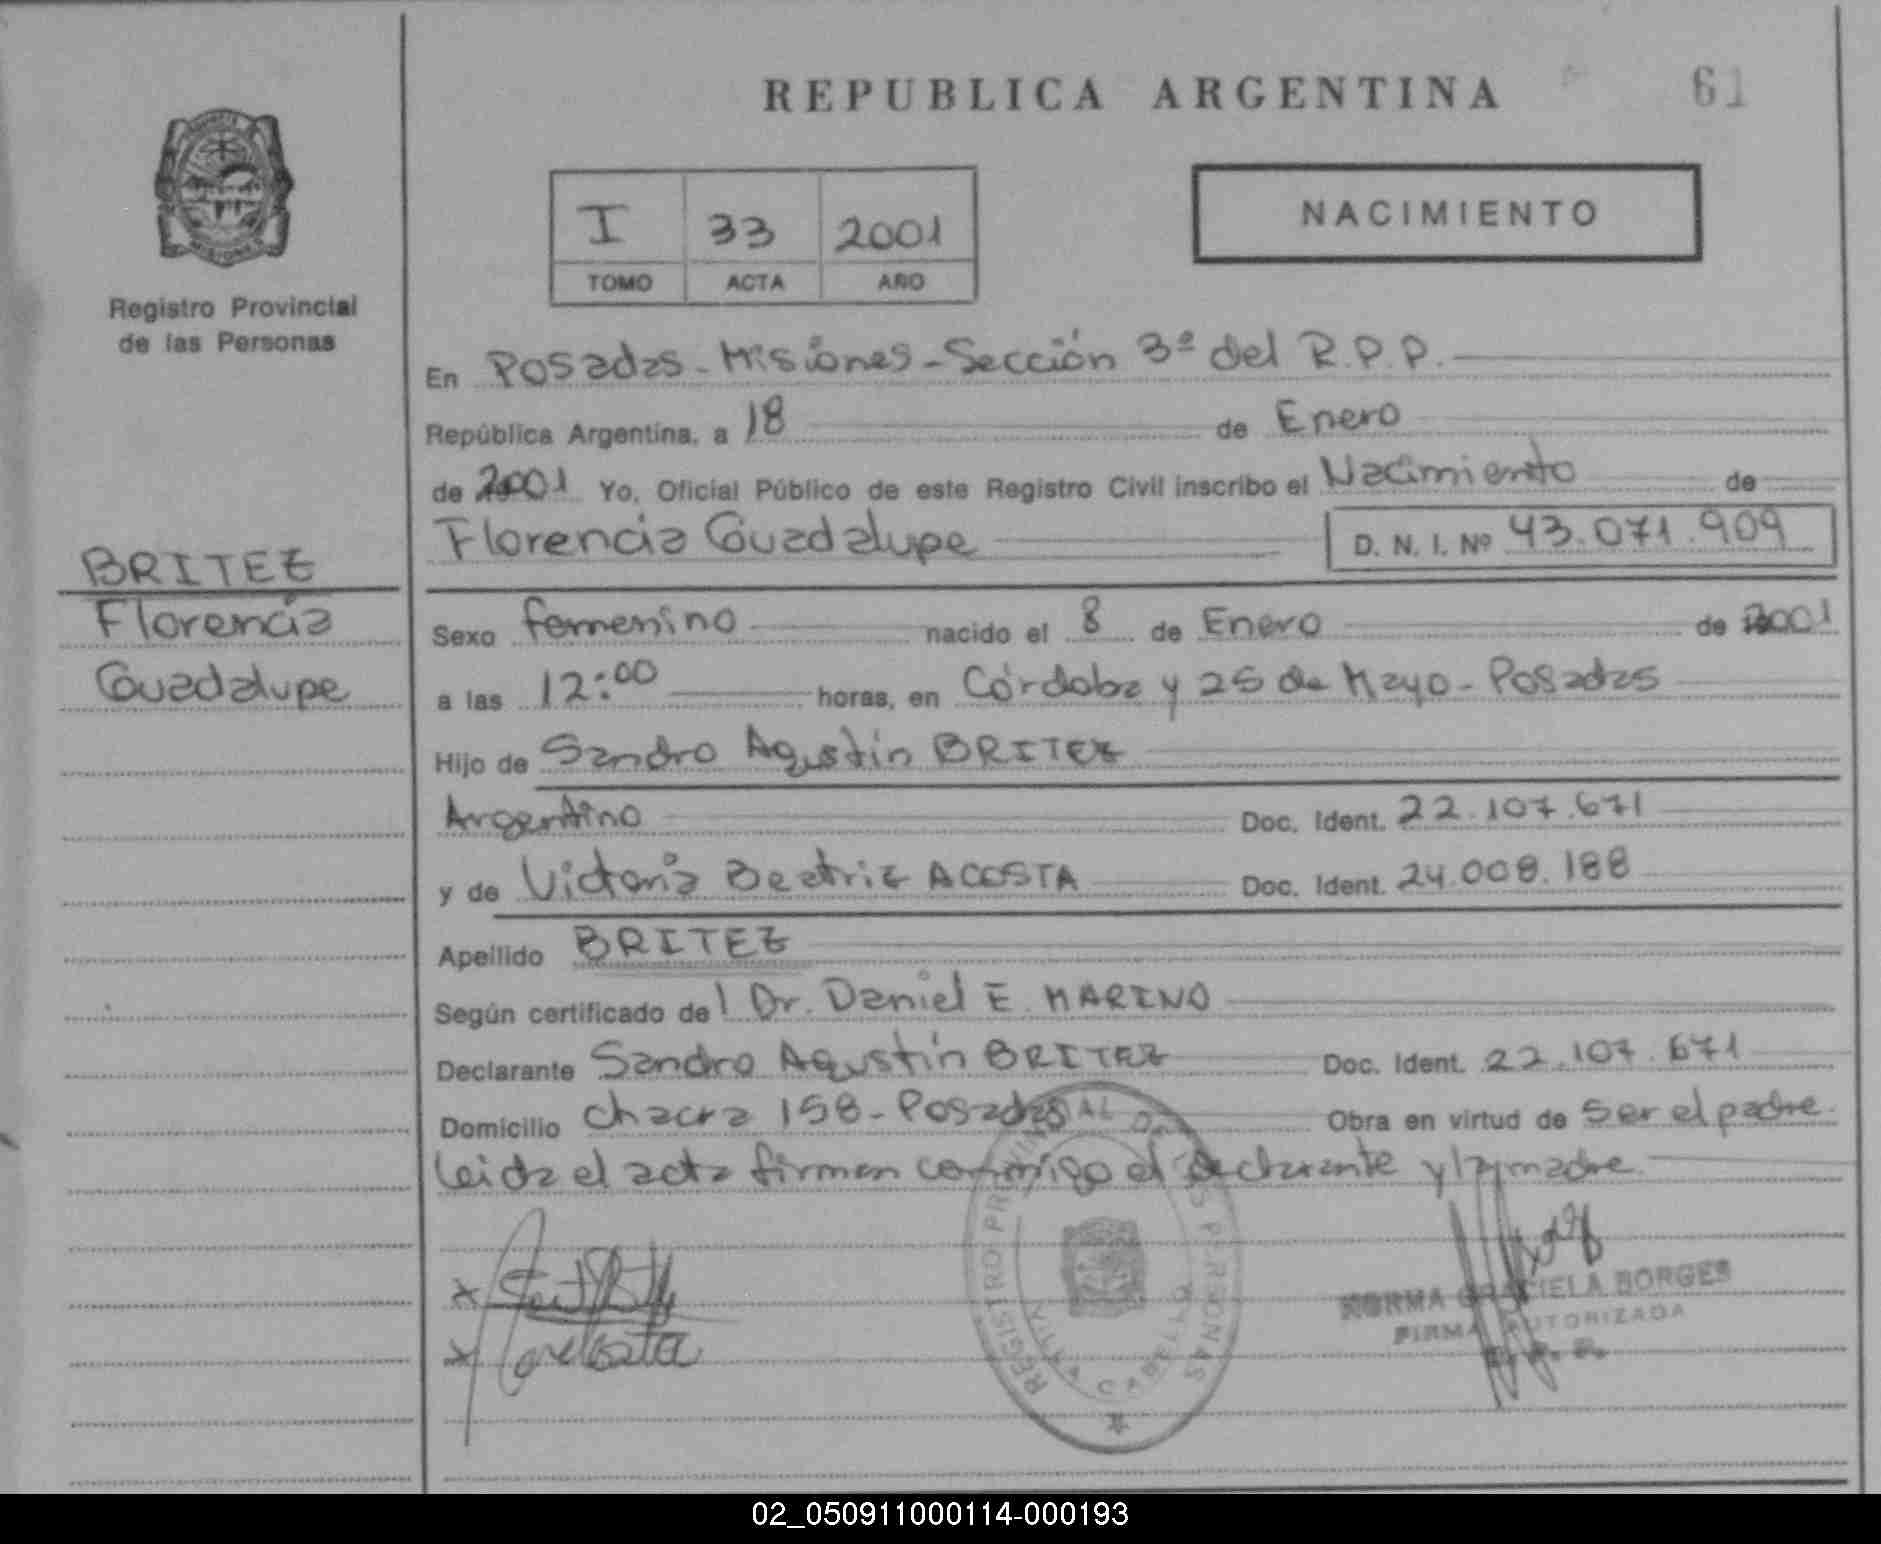 REPUBLICA ARGENTINA
61
I 33 2001
TOMO ACTA AÑO
NACIMIENTO
Registro Provincial
de las Personas
En Posadas - Misiones - Sección 3ª del R.P.P.
República Argentina, a 18 de Enero
de 2001 Yo, Oficial Público de este Registro Civil inscribo el Nacimiento de
Florencia Guadalupe D. N. I. Nº 43.071.909
BRITEZ
Florencia
Guadalupe
Sexo femenino nacido el 8 de Enero de 2001
a las 12:00 horas, en Córdoba y 25 de Mayo - Posadas
Hijo de Sandro Agustín BRITEZ
Argentino Doc. Ident. 22.107.671
y de Victoria Beatriz ACOSTA Doc. Ident. 24.008.188
Apellido BRITEZ
Según certificado del Dr. Daniel E. MARINO
Declarante Sandro Agustín BRITEZ Doc. Ident. 22.107.671
Domicilio Chacra 158 - Posadas Obra en virtud de Ser el padre.
Leida el acta firman conmigo el declarante y la madre.
REGISTRO PROVINCIAL DE LAS PERSONAS
NORMA GRACIELA BORGES
FIRMA AUTORIZADA
R. P. P.
02_050911000114-000193